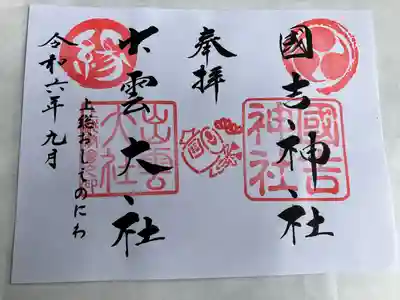 國吉神社
國吉神社
奉拝
縁
出雲大社
出雲大社
上総おしえのにわ
令和六年九月